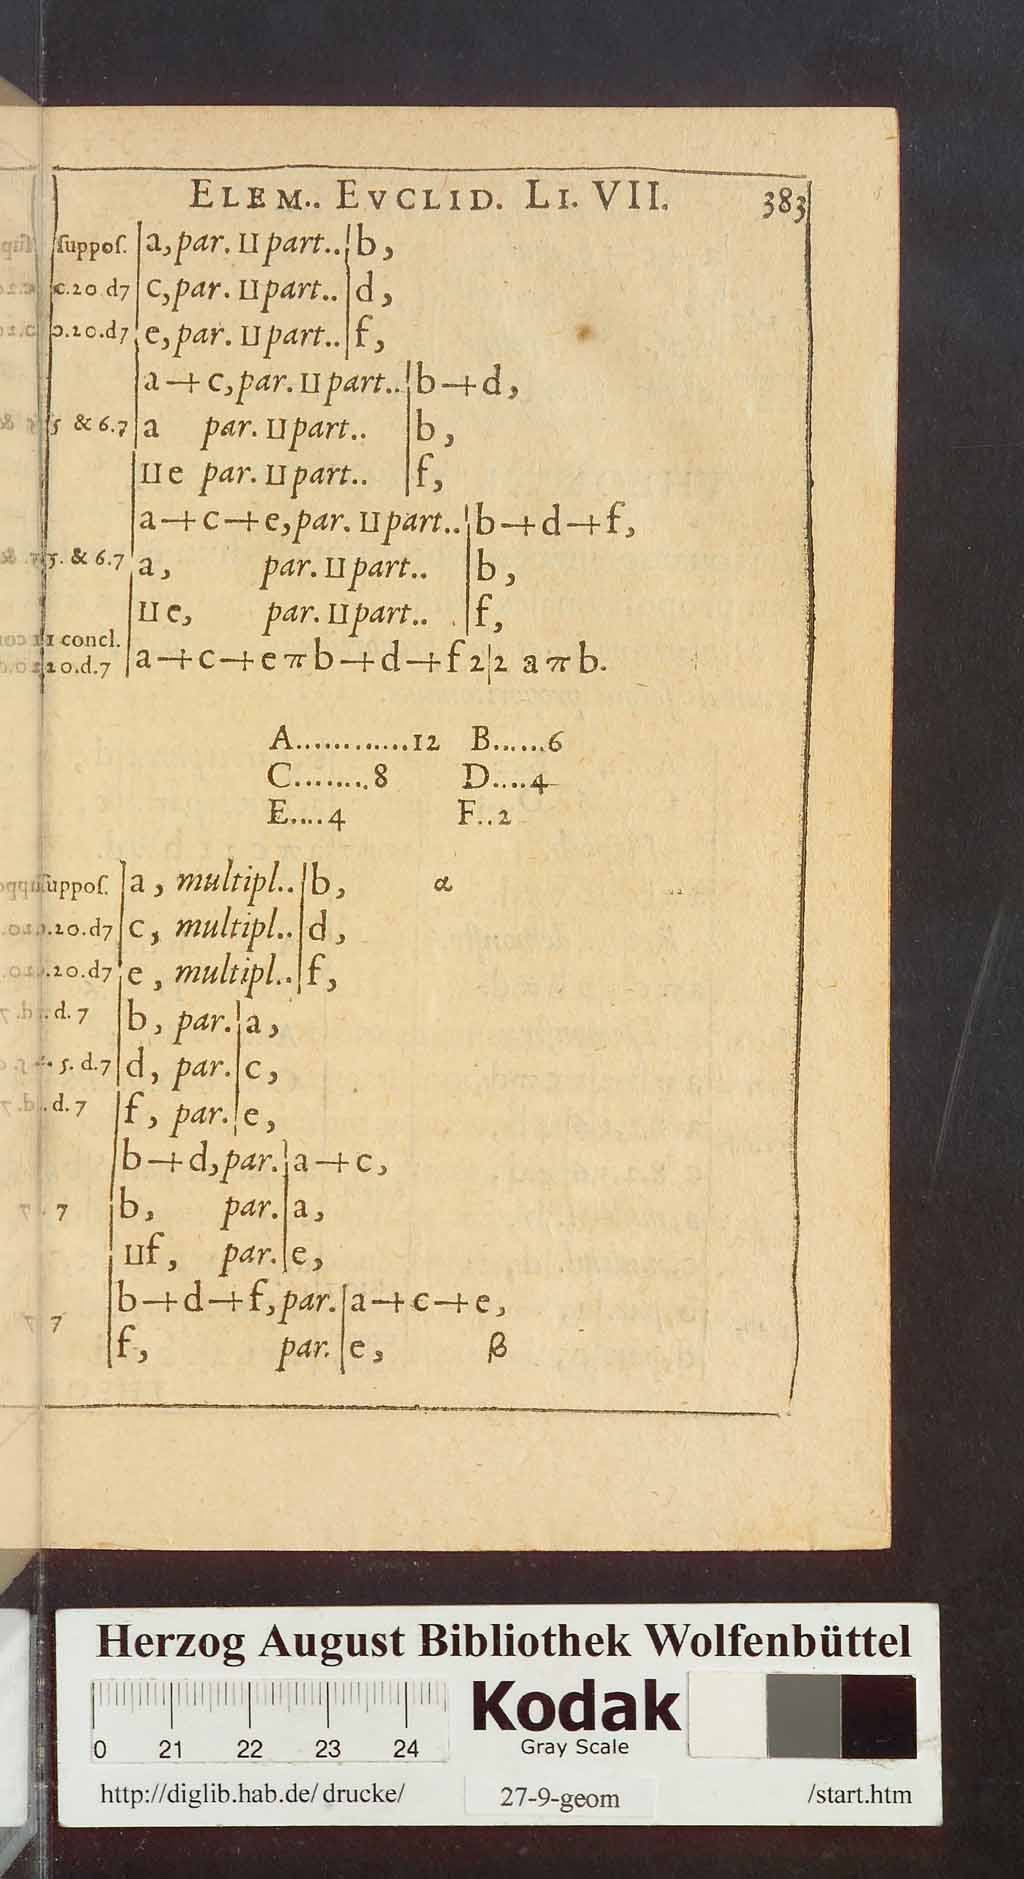 ELEM.. EVCLID. LI. VII. 383
suppoſ. |a, par. II part..|b,
c.20 d7 |c, par. II part..|d,
.20.d7 |e, par. II part..|f,
|a + c, par. II part..|b + d,
5 & 6.7 |a par. II part.. |b,
|II e par. II part.. |f,
|a + c + e, par. II part..|b + d + f,
5. & 6.7 |a, par. II part.. |b,
|II e, par. II part.. |f,
1 concl.
20.d.7 |a + c + e π b + d + f 2|2 a π b.
A............12 B......6
C........8 D....4
E....4 F..2
ſuppoſ. |a, multipl..|b, α
.20.d7 |c, multipl..|d,
.20.d7 |e, multipl..|f,
.d. 7 |b, par.|a,
5. d.7 |d, par.|c,
.d. 7 |f, par.|e,
|b + d, par.|a + c,
7 |b, par.|a,
|II f, par.|e,
|b + d + f, par.|a + c + e,
7 |f, par.|e, β
Herzog August Bibliothek Wolfenbüttel
Kodak
Gray Scale
0 21 22 23 24
http://diglib.hab.de/ drucke/ 27-9-geom /start.htm